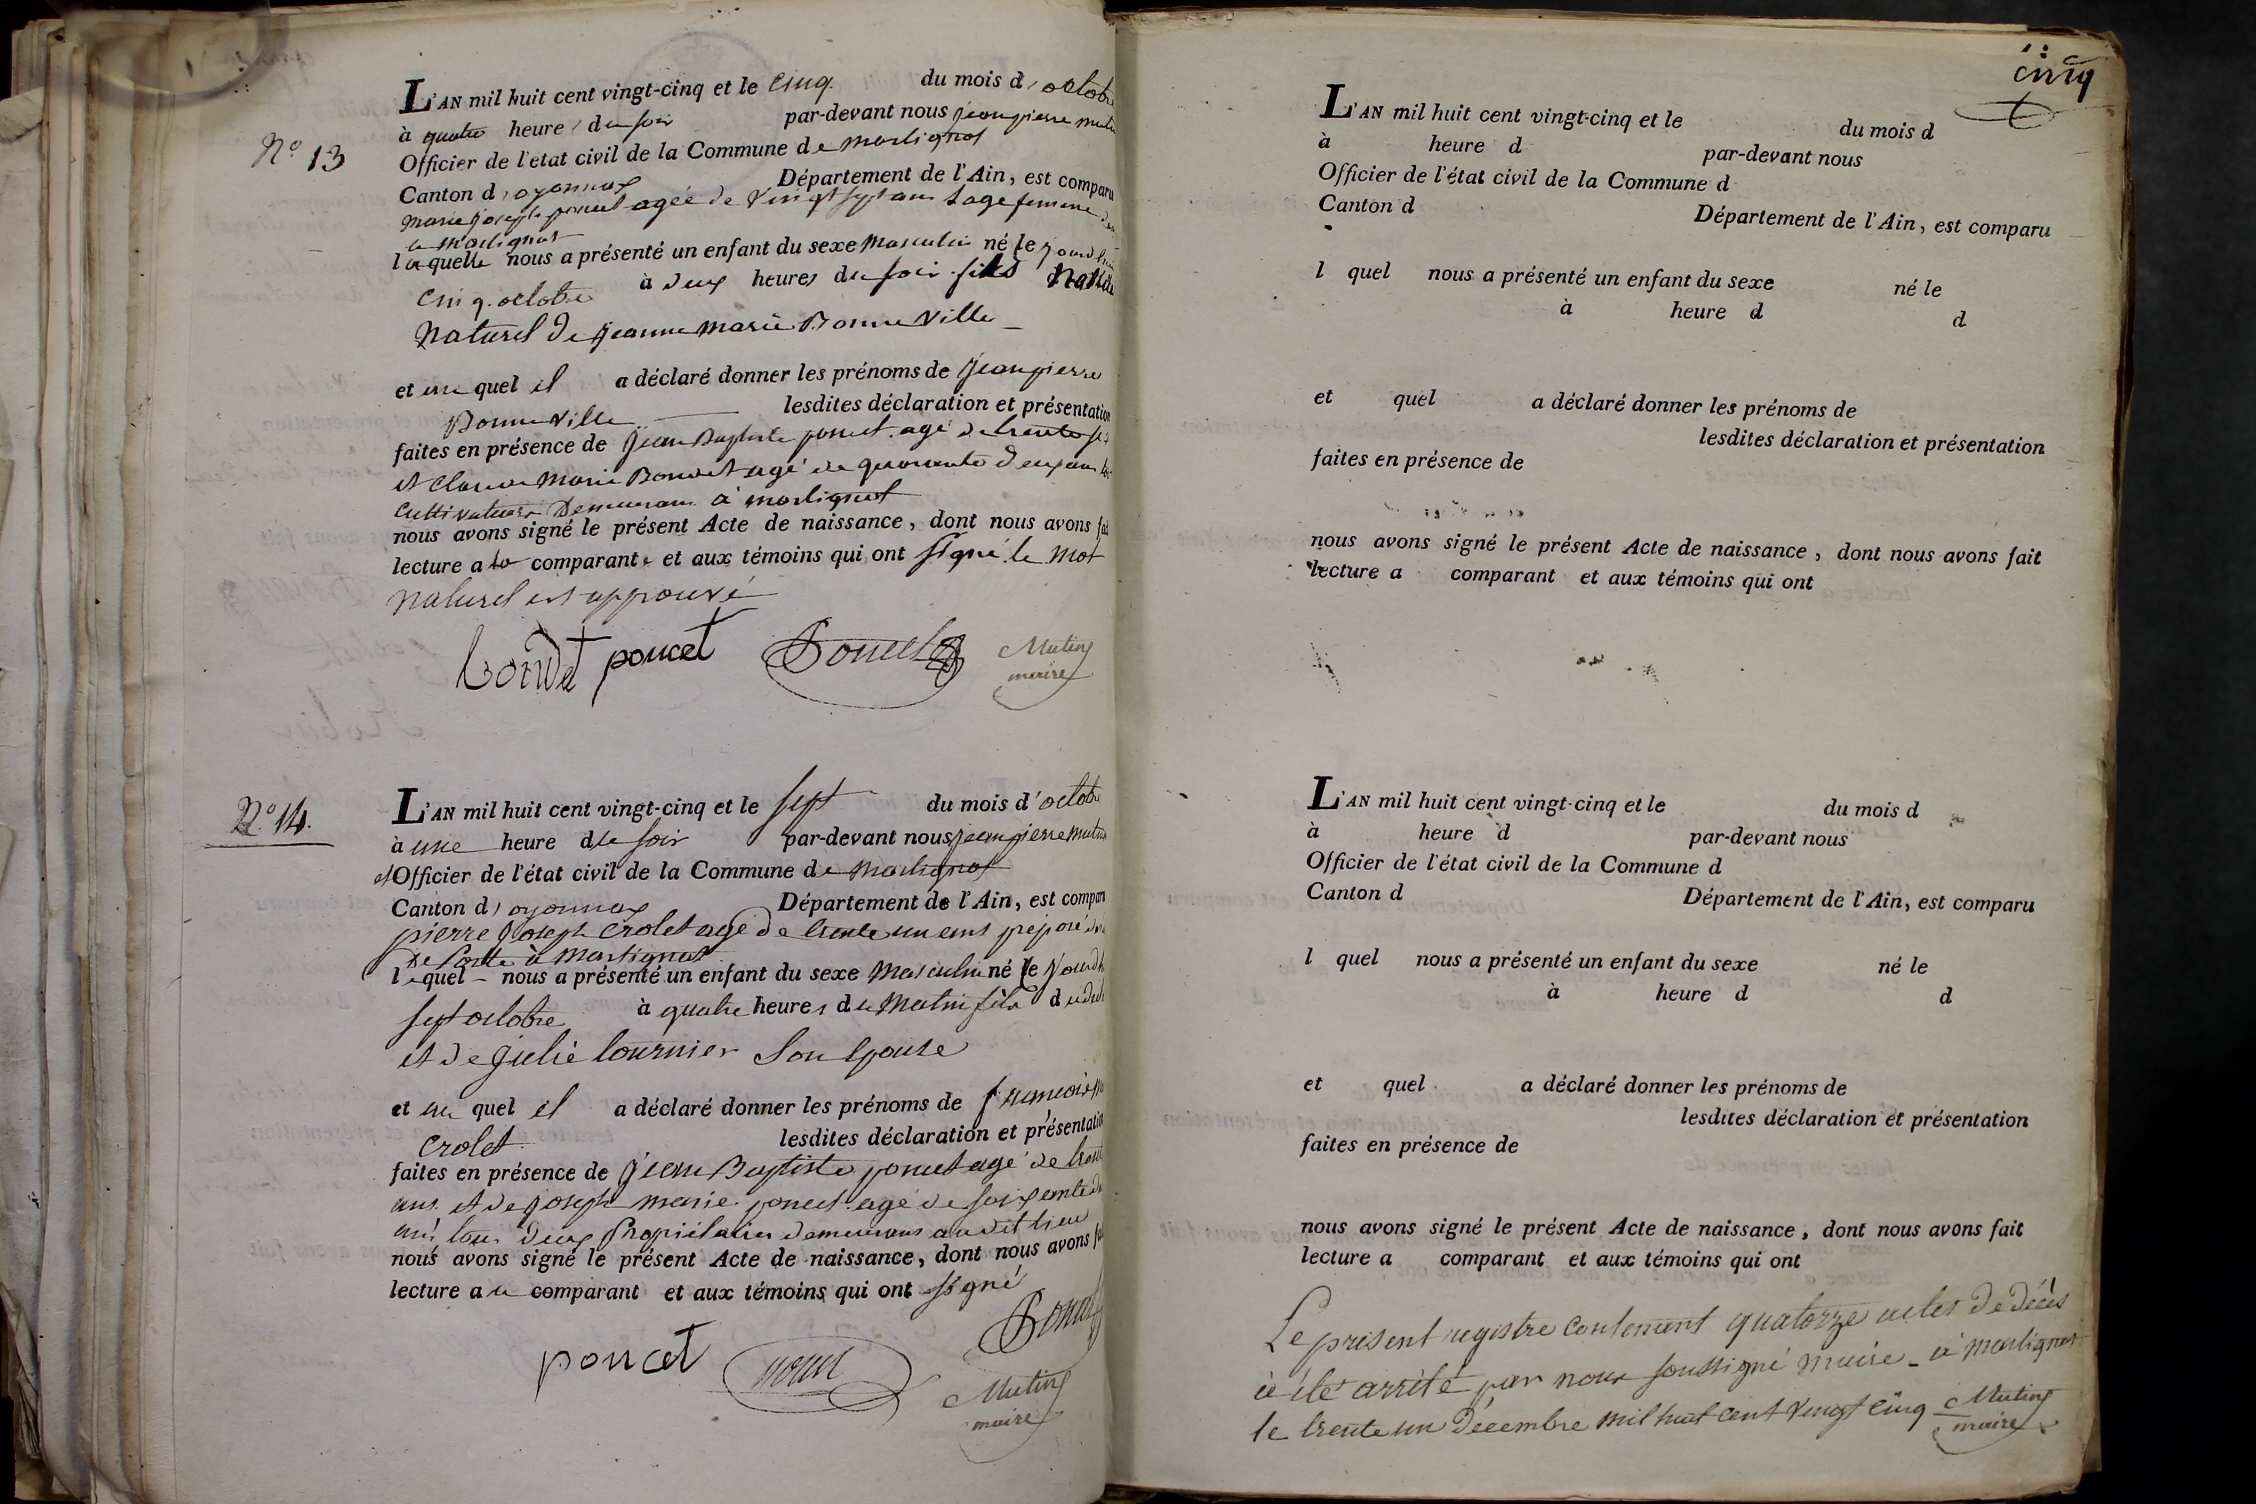 L'AN mil huit cent vingt-cinq et le cinq du mois d'octobre
à quatre heures du soir par-devant nous jean pierre mutin
N.° 13
Officier de l'etat civil de la Commune de martignat
Canton d'oyonnax Département de l'Ain, est comparu
marie josephe poncet agée de vingt sept ans sage femme
a martignat
laquelle nous a présenté un enfant du sexe masculin né le jourd'hui
cinq octobre à deux heures du soir fils
naturel de jeanne marie Bonneville
et au quel il a déclaré donner les prénoms de jean pierre
Bonneville lesdites déclaration et présentation
faites en présence de jean Baptiste poncet agé de trente
et claude marie Bondet agé de quarante deux ans
cultivateurs demeurans à martignat
nous avons signé le présent Acte de naissance, dont nous avons fait
lecture a la comparante et aux témoins qui ont signé le mot
naturel est approuvé
Bondet poncet Poncet Mutin
maire
N.° 14.
L'AN mil huit cent vingt-cinq et le sept du mois d'octobre
à une heure du soir par-devant nous jean pierre mutin
Officier de l'état civil de la Commune de martignat
Canton d'oyonnax Département de l'Ain, est comparu
pierre joseph crolet agé de trente un ans préposé
à martignat
lequel nous a présenté un enfant du sexe masculin né le jourd'h
sept octobre à quatre heures du matin fils dudit
et de julie tournier son epouse
et au quel il a déclaré donner les prénoms de francois
crolet lesdites déclaration et présentation
faites en présence de jean Baptiste poncet agé de trente
ans et de joseph marie poncet agé de soixante
ans tous deux propriétaires demeurans audit lieu
nous avons signé le présent Acte de naissance, dont nous avons fait
lecture au comparant et aux témoins qui ont signé
poncet Poncet
Mutin
maire
cinq
L'AN mil huit cent vingt-cinq et le du mois d
à heure d par-devant nous
Officier de l'état civil de la Commune d
Canton d Département de l'Ain, est comparu
l quel nous a présenté un enfant du sexe né le
à heure d d
et quel a déclaré donner les prénoms de
lesdites déclaration et présentation
faites en présence de
nous avons signé le présent Acte de naissance, dont nous avons fait
lecture a comparant et aux témoins qui ont
L'AN mil huit cent vingt-cinq et le du mois d
à heure d par-devant nous
Officier de l'état civil de la Commune d
Canton d Département de l'Ain, est comparu
l quel nous a présenté un enfant du sexe né le
à heure d d
et quel a déclaré donner les prénoms de
lesdites déclaration et présentation
faites en présence de
nous avons signé le présent Acte de naissance, dont nous avons fait
lecture a comparant et aux témoins qui ont
Le present registre contenant quatorze actes de décès
à été arrêté par nous soussigné maire à martignat
le trente un décembre mil huit cent vingt cinq Mutin
maire